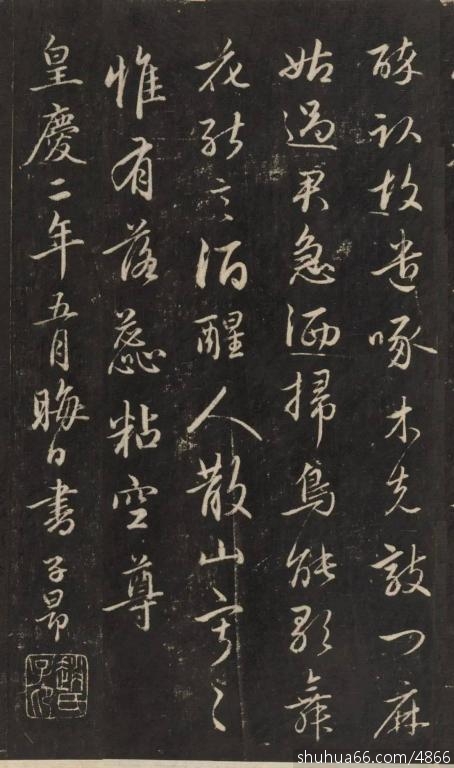 醉卧故遣啄木先敲门麻
姑過君急洒掃鳥能歌舞
花能言酒醒人散山寂〻
惟有落蕊粘空尊
皇慶二年五月晦日書子昂
趙氏子昂
shuhua66.com/4866